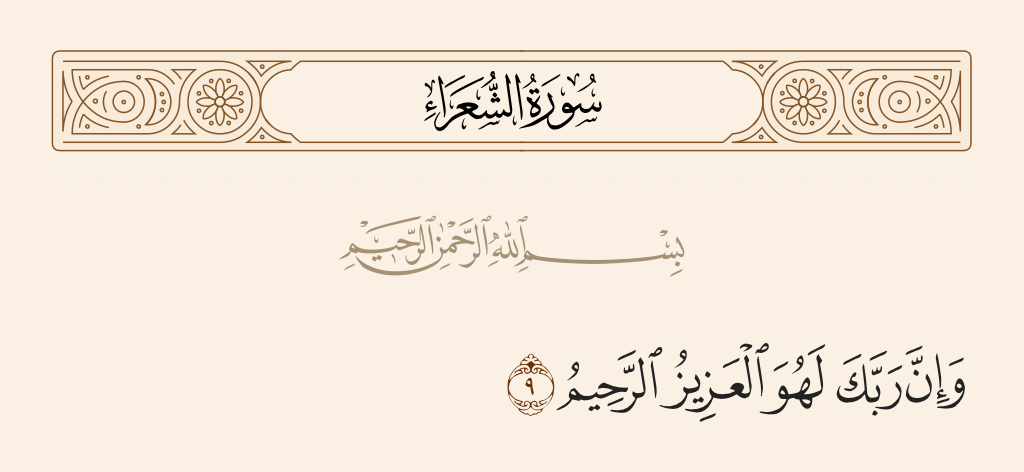 سُورَةُ الشُّعَرَاءِ
بِسْمِ ٱللَّهِ ٱلرَّحْمَٰنِ ٱلرَّحِيمِ
وَإِنَّ رَبَّكَ لَهُوَ ٱلْعَزِيزُ ٱلرَّحِيمُ ٩